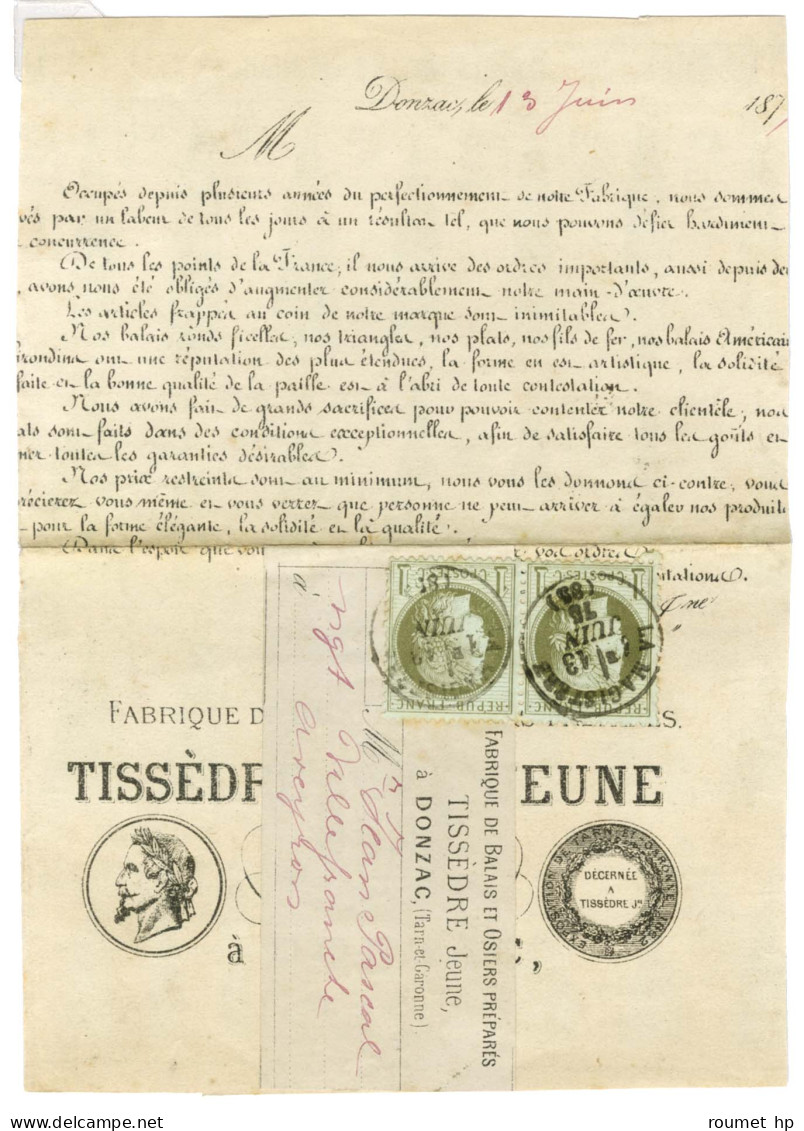 Donzac, le 13 Juin 187
M
Occupés depuis plusieurs années du perfectionnement de notre Fabrique, nous sommes
vés par un labeur de tous les jours à un résultat tel, que nous pouvons défier hardiment
concurrence.
De tous les points de la France, il nous arrive des ordres importants, aussi depuis
, avons nous été obligés d'augmenter considérablement notre main-d'œuvre.
Les articles frappés au coin de notre marque sont inimitables.
Nos balais ronds ficelles, nos triangles, nos plats, nos fils de fer, nos balais Américai
irondins ont une réputation des plus étendues, la forme en est artistique, la solidité
faite et la bonne qualité de la paille est à l'abri de toute contestation.
Nous avons fait de grands sacrifices pour pouvoir contenter notre clientèle, nos
ats sont faits dans des conditions exceptionnelles, afin de satisfaire tous les goûts et
ner toutes les garanties désirables.
Nos prix restreints sont au minimum, nous vous les donnons ci-contre, vous
récierez vous même et vous verrez que personne ne peut arriver à égaler nos produits
pour la forme élégante, la solidité et la qualité.
Dans l'espoir que vou vos ordres
ntations.
FABRIQUE D
TISSÈDR EUNE
à
EXPOSITION DE TARN-ET-GARONNE 1862
DÉCERNÉE
A
TISSÈDRE Jne
1c POSTES 1c
REPUB·FRANC·
1c POSTES 1c
REPUB·FRANC·
LA MAGISTERE
13
JUIN
76
(81)
LA MAGISTERE
13
JUIN
(81)
FABRIQUE DE BALAIS ET OSIERS PRÉPARÉS
TISSÈDRE Jeune,
à DONZAC, (Tarn-et-Garonne).
Mr Jean Pascal
ngt Villefranche
à aveyron
roumet hp